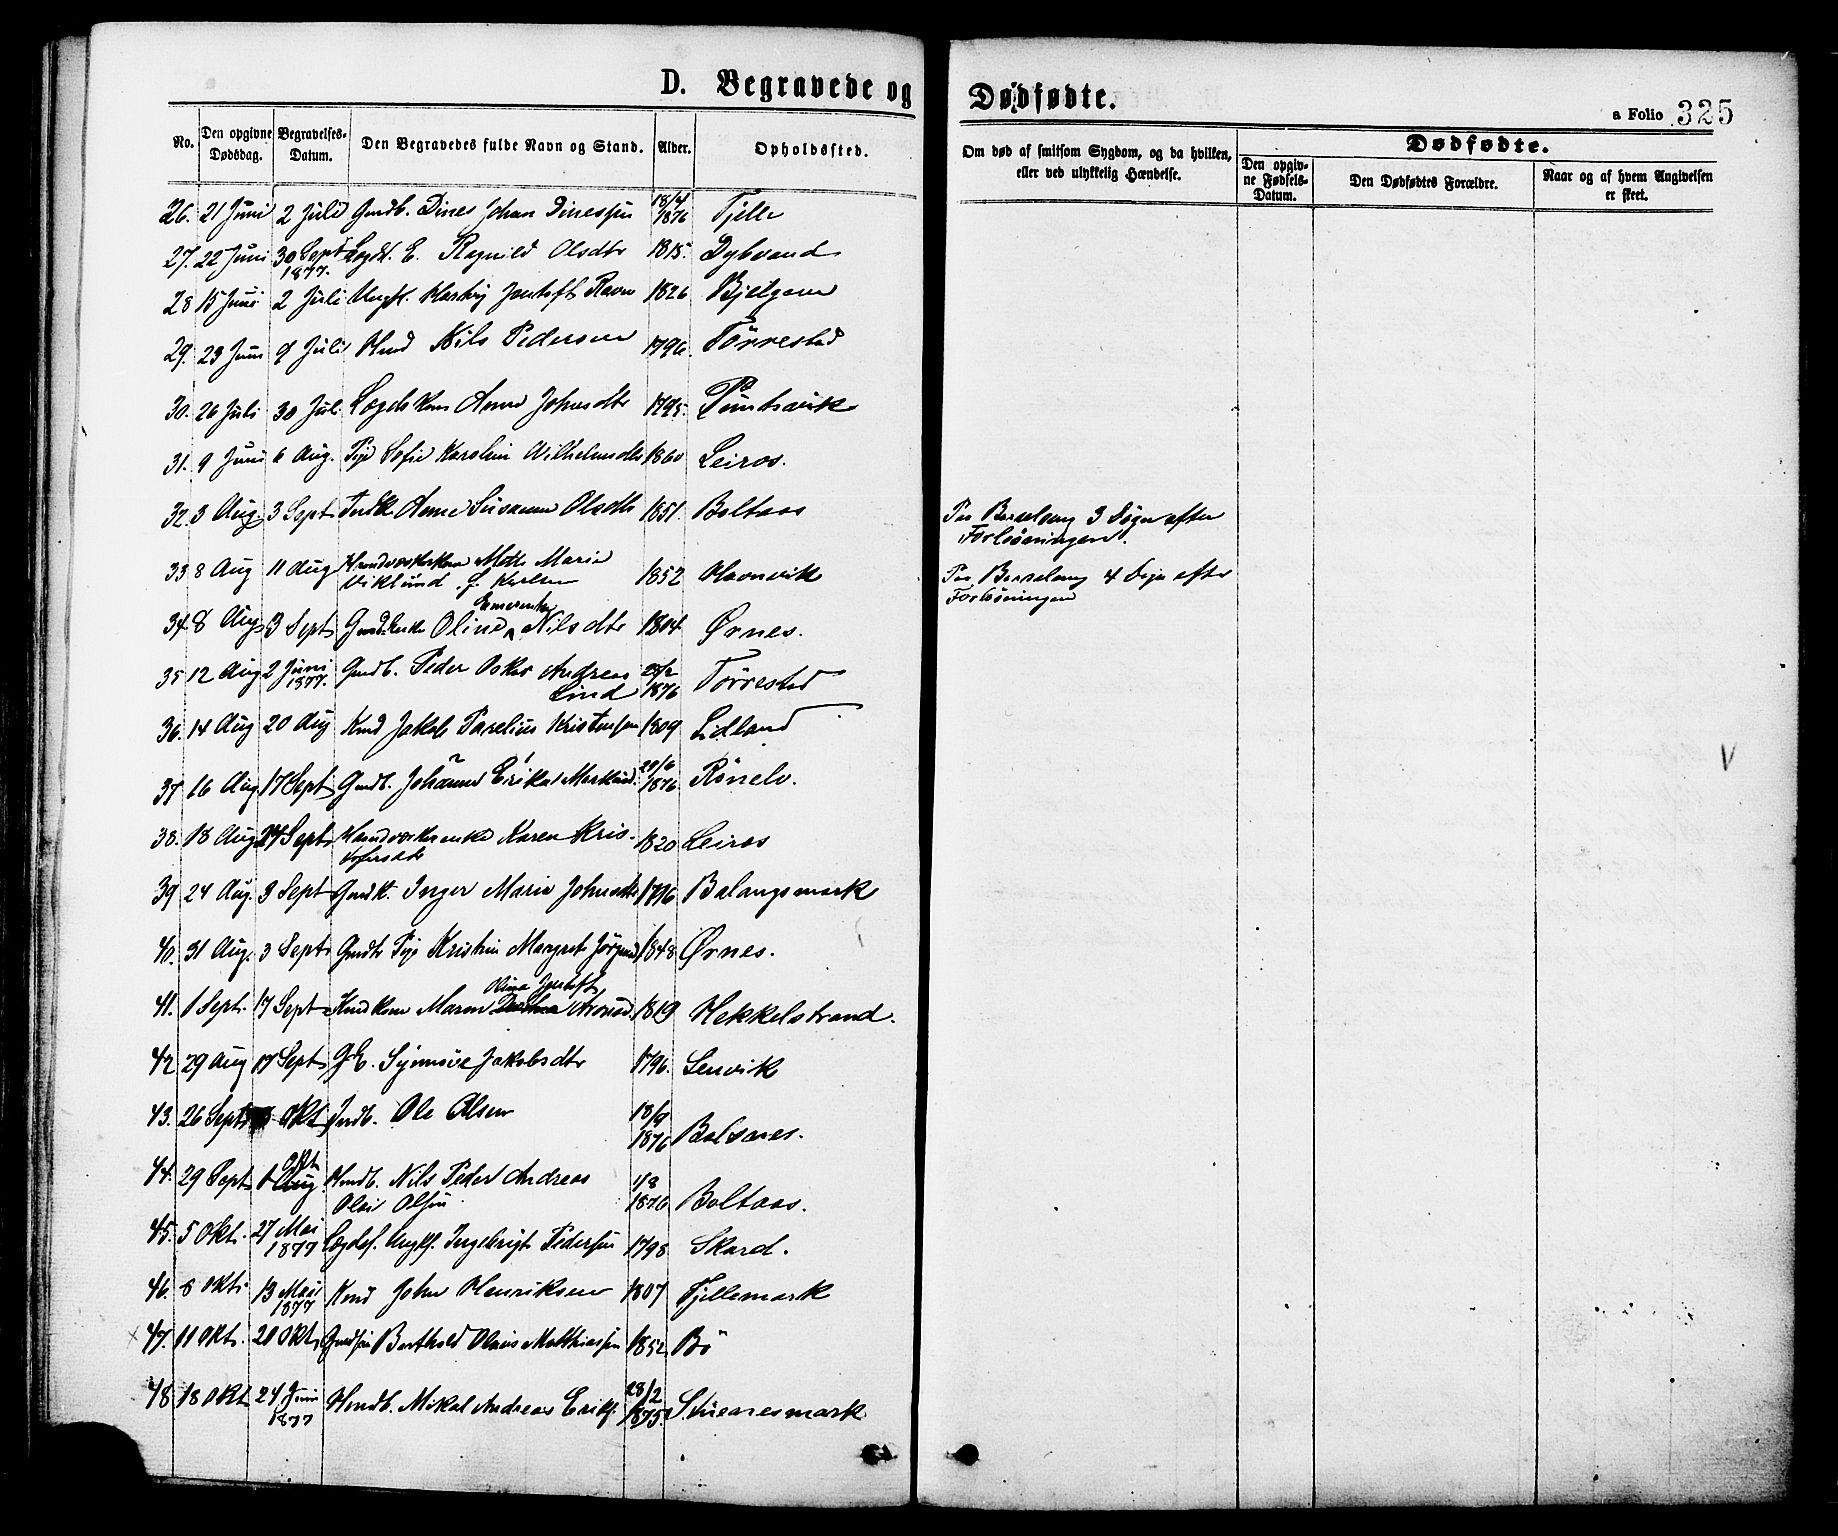 D. Begravede og Dødfødte.
a Folio 325
No. Den opgivne Dødsdag. Begravelses-Datum. Den Begravedes fulde Navn og Stand. Alder. Opholdssted. Om død af smitsom Sygdom, og da hvilken, eller ved ulykkelig Hændelse. Dødfødte.
Den opgivne Fødsels-Datum. Den Dødfødtes Forældre. Naar og af hvem Angivelsen er skeet.
26. 21 Juni 2 Juli Gmdb. Dines Johan Dinessen 18/4 1876 Fjelle
27. 22 Juni 30 Sept 1877. Lægdl. E. Ragnild Olsdtr 1815. Dybvand
28 15 Juni 2 Juli Ungk. Hartvig Jentoft Ravn 1826 Bjelgam
29. 23 Juni 9 Juli Hmd Nils Pedersen 1796. Tørrestad
30. 26 Juli 30 Juli Lægds Kone Anne Johnsdtr 1795.
31. 9 Juni 6 Aug. Pige Sofie Karolin Vilhelmsdtr 1860 Leiros.
32. 3 Aug. 3 Sept Indk Anne Susanna Olsdtr 1851. Boltaas Paa Barselseng 3 Døgn efter
Forløsningen.
33 8 Aug 11 Aug Haandværkerkone Mette Maria
Viklund f. Karlsen 1852 Havnvik Paa Barselseng 4 Døgn efter
Forløsningen
34. 8 Aug. 3 Sept Gmd.Enke Oline Emerentze Nilsdtr 1804. Ørnes.
35 12 Aug 2 Juni 1877. Gmdb. Peder Oskar Andreas
Lind 28/2 1876 Tørrestad
36. 14 Aug 20 Aug Kmd Jakob Parelius Kristensen 1809 Lidland
37 16 Aug 17 Sept Gmdb. Johannes Erikas Marklund. 29/6 1876. Rønelv.
38. 18 Aug 24 Sept. Haandværkerenke Karen Kris-
tofersdtr 1820 Leiros
39 24 Aug. 3 Sept Gmdk. Inger Maria Johnsdtr 1796 Balangsmark
40. 31 Aug. 3 Sept. Gmds Pige Kristin Margret Jørgensd 1848 Ørnes.
41. 1 Sept. 17 Sept Hmdkone Maren Olina Jentoft Aronsd. 1819 Hekkelstrand.
42 29 Aug 17 Sept G.E. Synnøve Jakobsdtr 1796. Lenvik
43. 26 Sept Okt Indb. Ole Olsen 18/9 1876 Balsnes.
44. 29 Sept 1 Okt Hmdb. Nils Peder Andreas
Olai Olsen 1/8 1876 Boltaas.
45. 5 Okt. 27 Mai 1877 Lægdsl. Ungk. Ingebrigt Pedersen 1798 Skard.
46. 8 Okt. 13 Mai 1877 Kmd John Henriksen 1807 Fjellemark
47. 11 Okt. 20 Okt Gmdsøn Berthold Olaus Mathiassen 1852. Bø
48 18 Okt 24 Juni 1877 Hmdb. Mikal Andreas Eriks. 28/2 1875. Stuenesmark